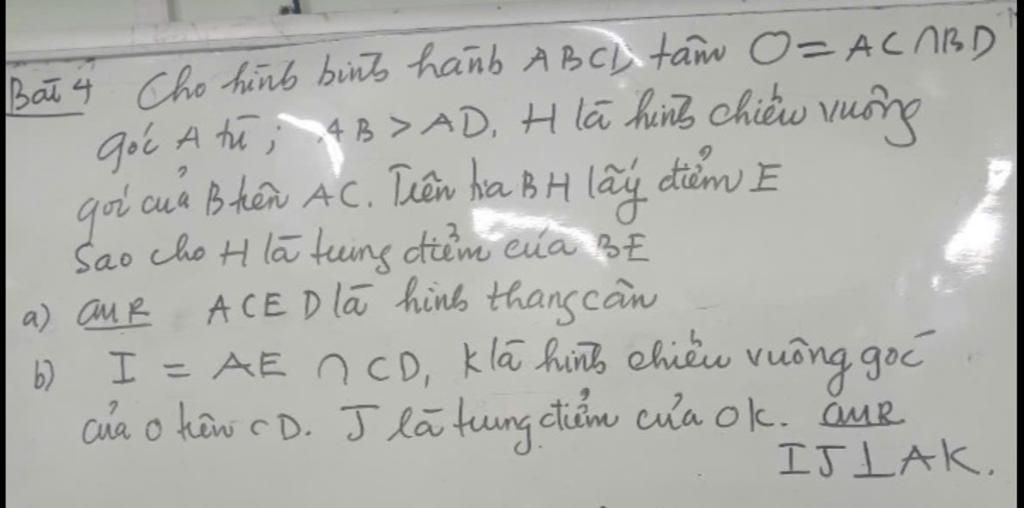 Bài 4 Cho hình bình hành ABCD tâm O = AC ∩ BD
góc A tù; AB > AD, H là hình chiếu vuông
gói của B trên AC. Trên tia BH lấy điểm E
Sao cho H là trung điểm của BE
a) CMR ACED là hình thang cân
b) I = AE ∩ CD, K là hình chiếu vuông góc
của O trên CD. J là trung điểm của OK. CMR
IJ ⊥ AK.